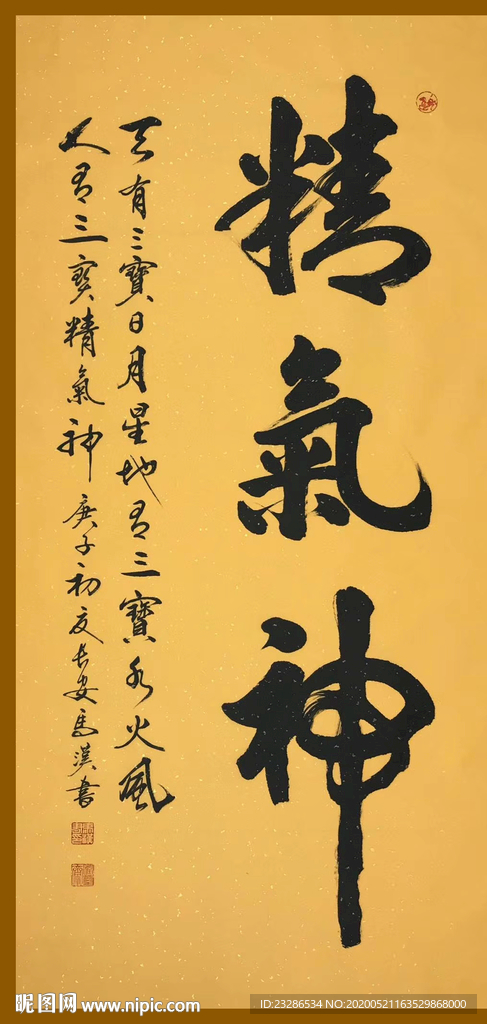 精氣神
天有三寶日月星地有三寶水火風
人有三寶精氣神 庚子初夏長安馬漢書
昵图网 www.nipic.com
ID:23286534 NO:20200521163529868000